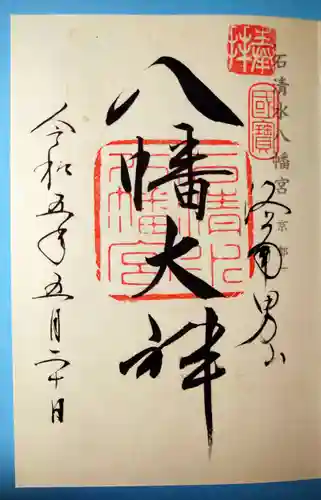 奉拝
国寳
石清水八幡宮
京都
男山
八幡大神
石清水八幡宮
令和五年五月二十日